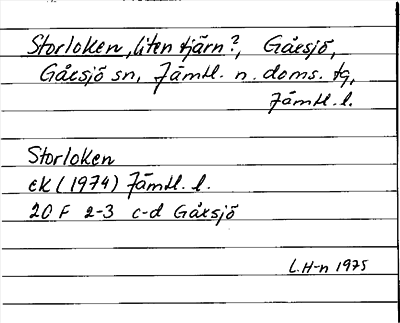 Storloken, liten tjärn?, Gåxsjö,
Gåxsjö sn, Jämtl. n. doms. tg,
Jämtl. l.
Storloken
ek (1974) Jämtl. l.
20 F 2-3 c-d Gåxsjö
L.H-n 1975